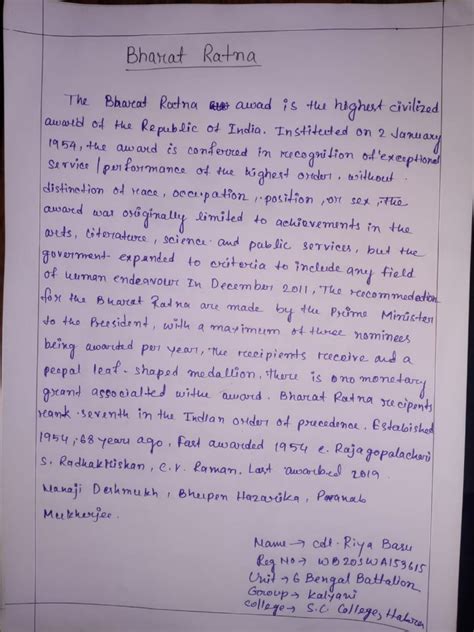 Bharat Ratna
The Bharat Ratna awad is the highest civilized
award of the Republic of India. Instituted on 2 January
1954, the award is conferred in recognition of "exceptional
service / performance of the highest order, without
distinction of race, occupation, position, or sex, The
award was originally limited to achievements in the
arts, literature, science and public services, but the
goverment expanded to criteria to include any field
of human endeavour In December 2011, The recommedation
for the Bharat Ratna are made by the Prime Minister
to the President, with a maximum of three nominees
being awarded per year, The recipients receive and a
peepal leaf - shaped medallion. There is ono monetary
grant associalted withe award. Bharat Ratna recipents
rank seventh in the Indian order of precedence. Estabished
1954, 68 years ago. Fast awarded 1954 c. Rajagopalachari
S. Radhakrishan, C.V. Raman. Last awarbed 2019
Nanaji Deshmukh, Bhupen Hazarika, Pranab
Mukherjee.
Name → cdt. Riya Basu
Reg No → WB20SWA153615
Unit → 6 Bengal Battalion
Group → Kalyani
College → S.C. College,